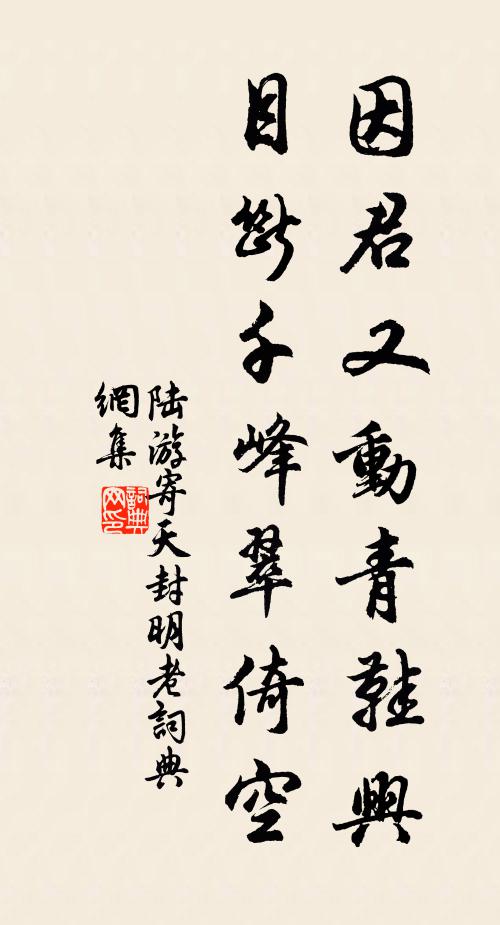 因君又動青鞋興
目斷千峰翠倚空
陸游寄天封明老詞典
網集
詞典
网印